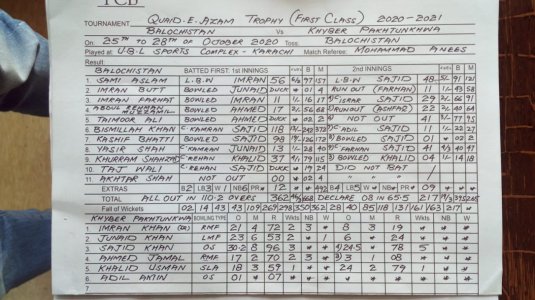 PCB
TOURNAMENT QUAID-E-AZAM TROPHY (FIRST CLASS) 2020-2021
BALOCHISTAN Vs KHYBER PAKHTUNKHWA
On: 25TH TO 28TH OF OCTOBER 2020 Toss: BALOCHISTAN
Played at: U.B.L SPORTS COMPLEX - KARACHI Match Referee: MOHAMMAD ANEES
Result:
BALOCHISTAN BATTED FIRST: 1st INNINGS B M 2nd INNINGS B M
1. SAMI ASLAM L.B.W IMRAN 56 97 157 L.B.W SAJID 48 91 121
2. IMRAN BUTT BOWLED JUNAID DUCK * 01 4 RUN OUT (FARHAN) 11 43 58
3. IMRAN FARHAT BOWLED IMRAN 11 16 17 C ISRAR SAJID 29 66 91
4. BOWLED AHMED 17 56 68 RUN OUT (ASHFAQ) 22 40 64
5. TAIMOOR ALI BOWLED AHMED DUCK * 02 2 NOT OUT 41 77 95
6. BISMILLAH KHAN C KAMRAN SAJID 118 242 373 C ADIL SAJID 11 23 27
7. KASHIF BHATTI BOWLED SAJID 98 126 172 BOWLED SAJID 01 * 02 2
8. YASIR SHAH C KAMRAN JUNAID 13 28 40 C FARHAN SAJID 41 40 47
9. KHURRAM SHAHZAD C REHAN KHALID 37 79 115 BOWLED KHALID 04 14 18
10. TAJ WALI C REHAN SAJID DUCK * 19 24 DID NOT BAT
11. AKHTAR SHAH NOT OUT 00 * 02 4
EXTRAS B2 LB3 W/ NB6 PR* 12 B4 LB5 W* NB* PR* 09 * * *
TOTAL ALL OUT IN 110.2 OVERS 362 668 DECLARE 08 IN 65.5 217 395 265
Fall of Wickets 02 14 43 43 109 269 298 350 362 28 40 85 118 131 161 163 217 *
KHYBER PAKHTUNKHWA BOWLING TYPE O M R Wkts NB W O M R Wkts NB W
1 IMRAN KHAN RMF 21 4 72 2 3 * 8 3 19 * * *
2. JUNAID KHAN LMF 23 6 53 2 * * 6 * 24 * * *
3. SAJID KHAN OS 30.2 8 96 3 * * 24.5 * 78 5 * *
4. AHMED JAMAL RMF 17 2 70 2 3 * 3 1 08 * * *
5. KHALID USMAN SLA 18 3 59 1 * * 24 2 79 1 * *
6. ADIL AMIN OS 01 * 07 * * * * * * * * *
7.